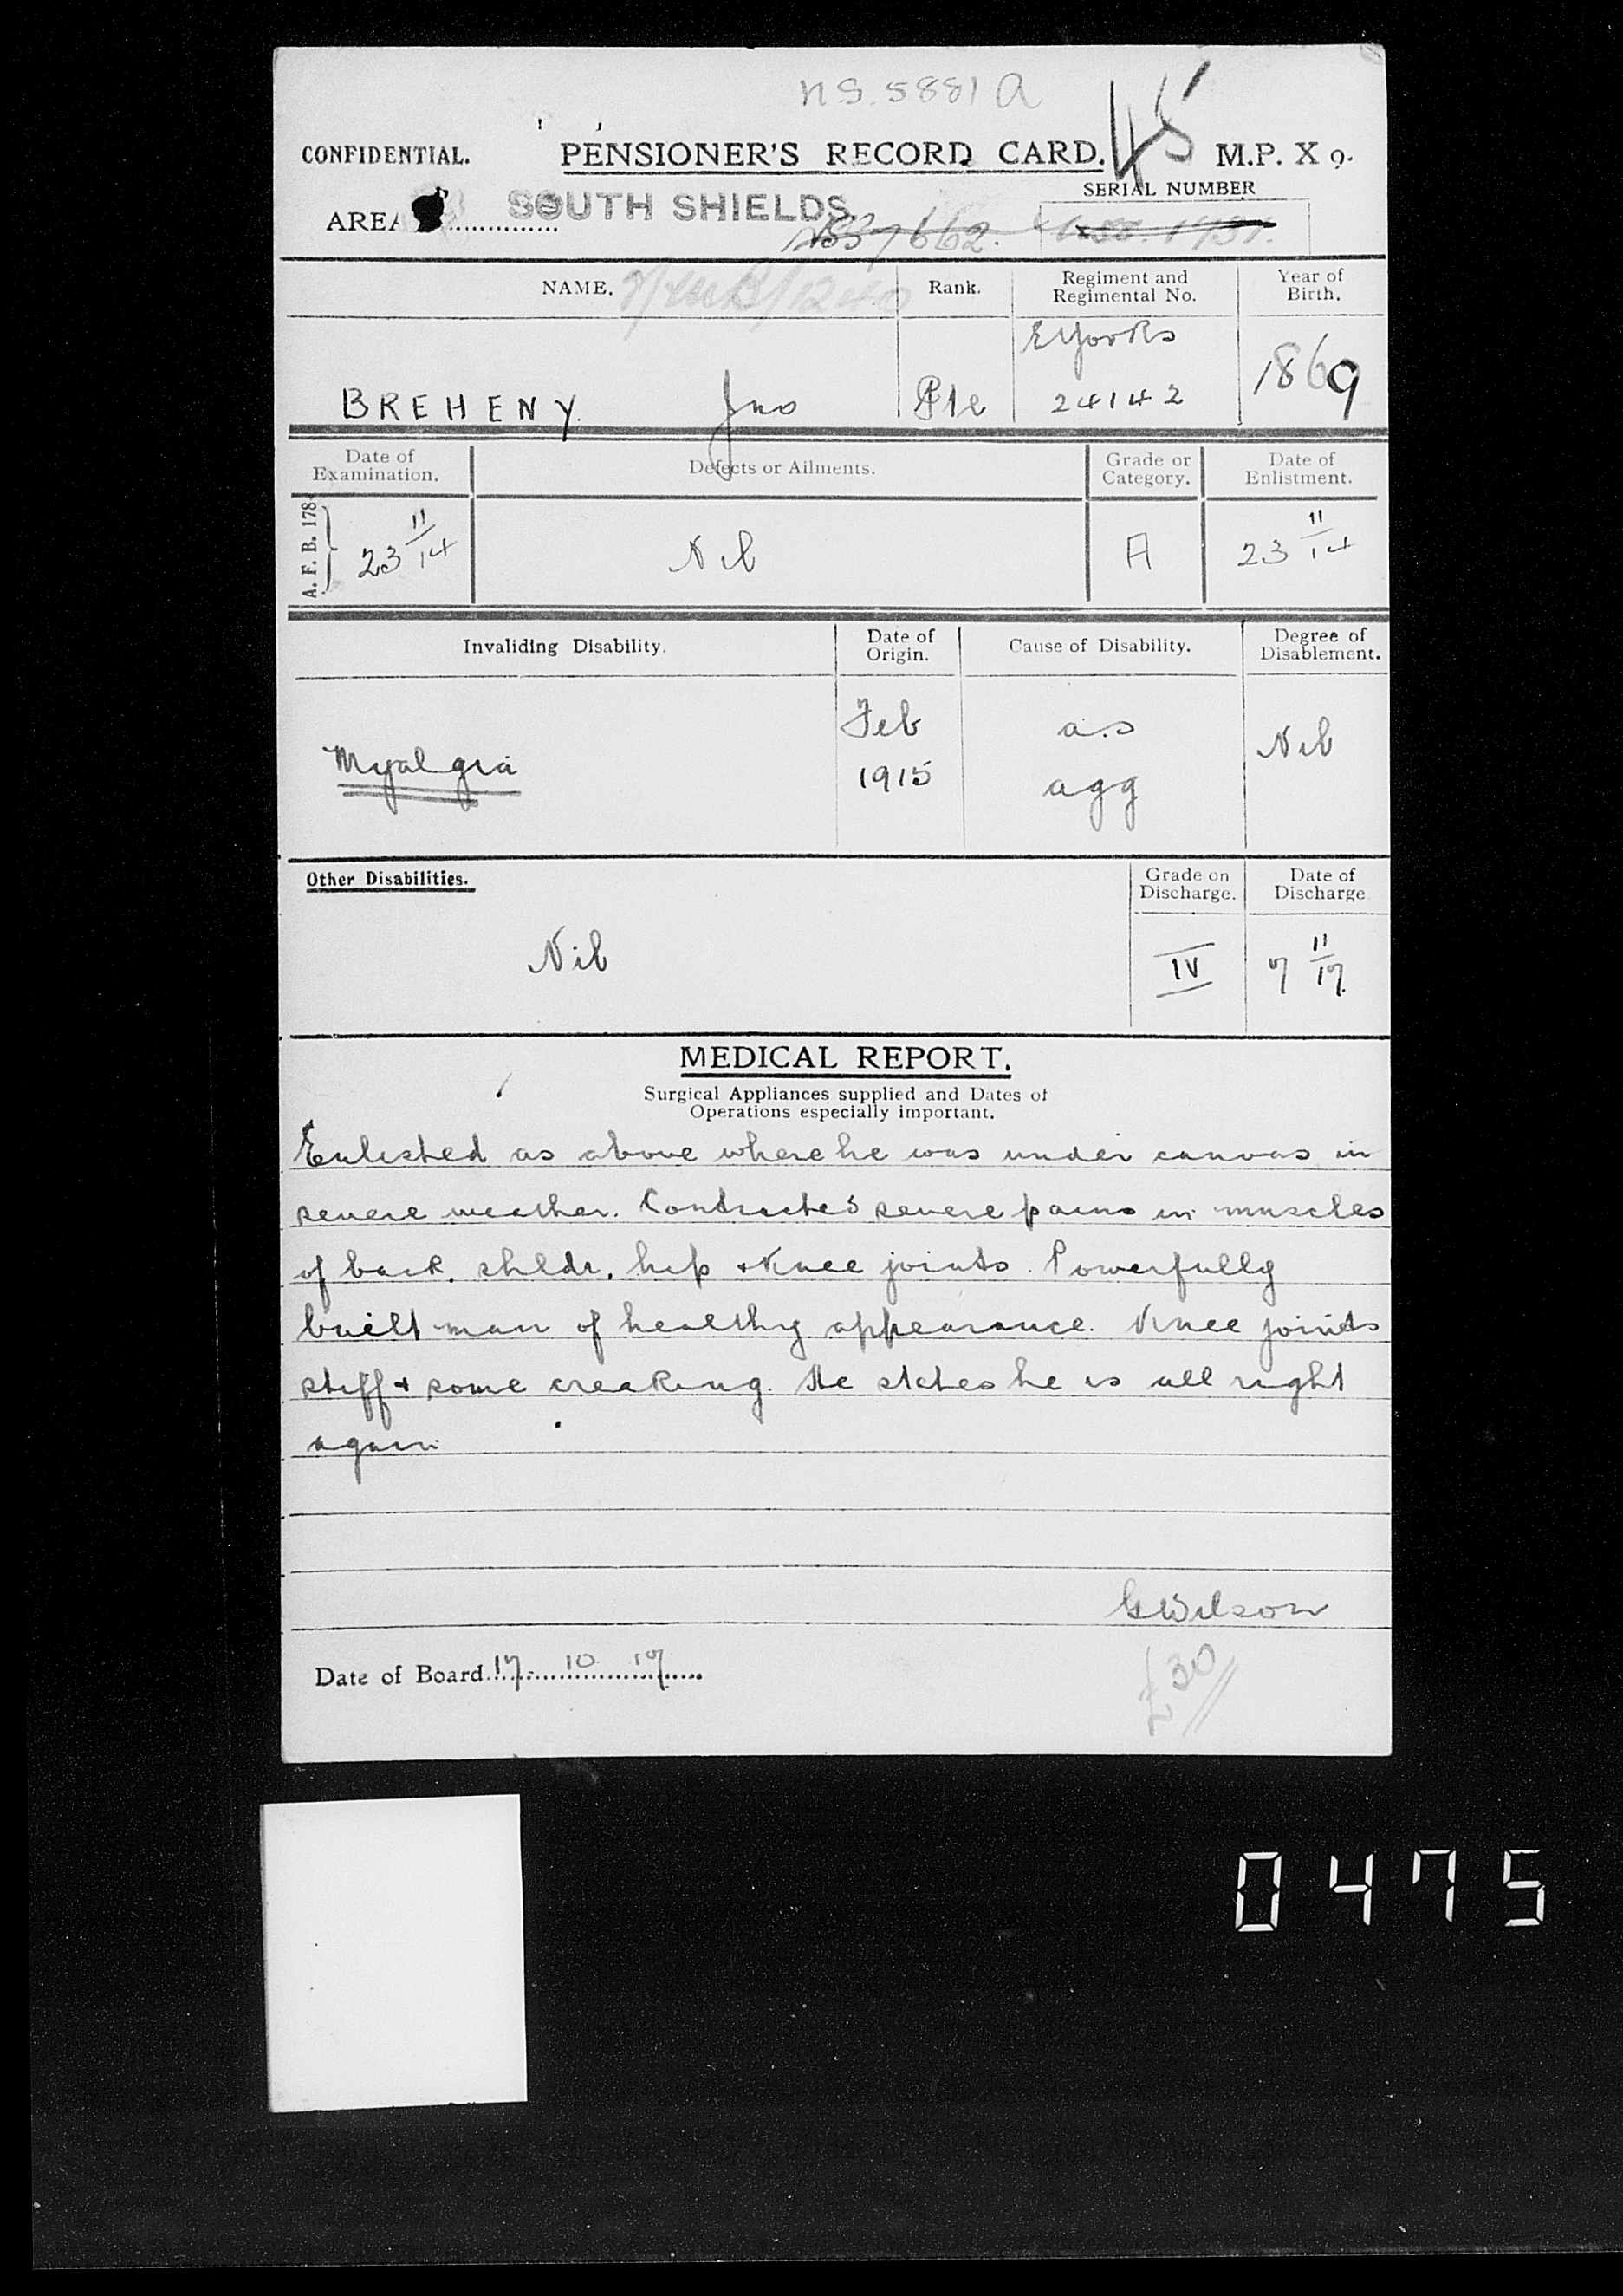 NS. 5881 A
45
CONFIDENTIAL. PENSIONER'S RECORD CARD. M.P. X 9.
SERIAL NUMBER
AREA SOUTH SHIELDS.
NAME. Rank. Regiment and Regimental No. Year of Birth.
E Yorks
BREHENY Jno Pte 24142 1869
Date of Examination. Defects or Ailments. Grade or Category. Date of Enlistment.
A. F. B. 178 23 11/14 Nil A 23 11/14
Invaliding Disability. Date of Origin. Cause of Disability. Degree of Disablement.
Myalgia Feb 1915 a.s agg Nil
Other Disabilities. Grade on Discharge. Date of Discharge
Nil IV 7 11/17.
MEDICAL REPORT.
Surgical Appliances supplied and Dates of
Operations especially important.
Enlisted as above where he was under canvas in
severe weather. Contracted severe pains in muscles
of back, shldr, hip + knee joints. Powerfully
built man of healthy appearance. Knee joints
stiff + some creaking. He states he is all right
again
G Wilson
Date of Board 17. 10 17
£30
0475